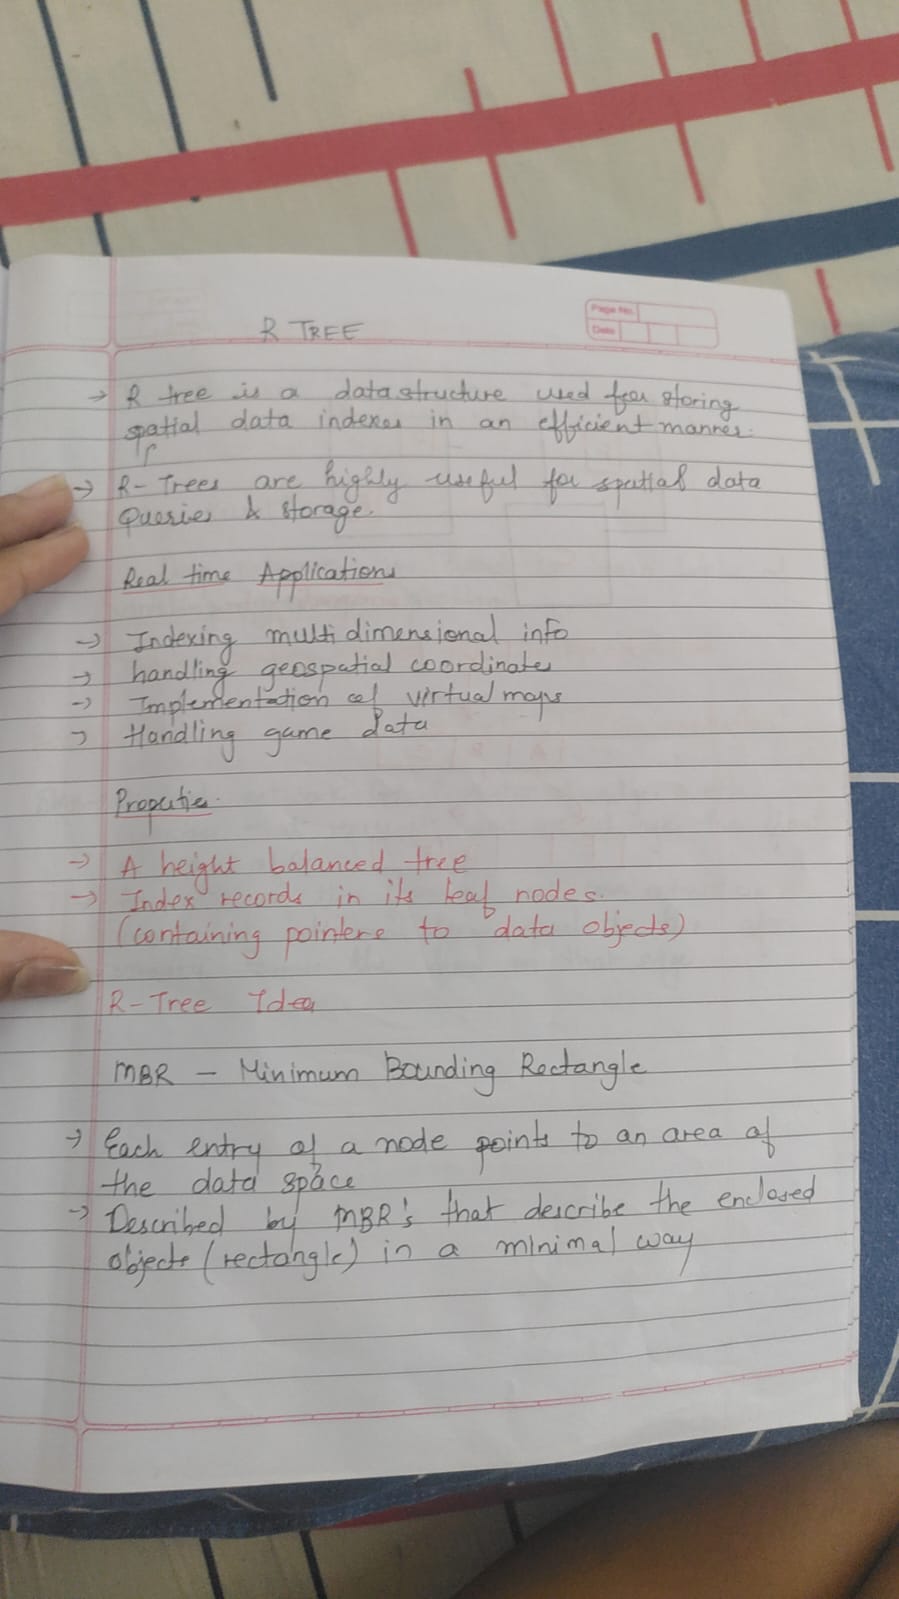 R TREE
Page No.
Date
→ R tree is a datastructure used for storing
spatial data indexes in an efficient manner.
→ R-Trees are highly useful for spatial data
Queries & storage.
Real time Applications
→ Indexing multidimensional info
→ handling geospatial coordinates
→ Implementation of virtual maps
→ Handling game data
Properties.
→ A height balanced tree
→ Index records in its leaf nodes.
(containing pointers to data objects)
R-Tree Idea
MBR - Minimum Bounding Rectangle
→ Each entry of a node points to an area of
the data space
→ Described by MBR's that describe the enclosed
objects (rectangle) in a minimal way